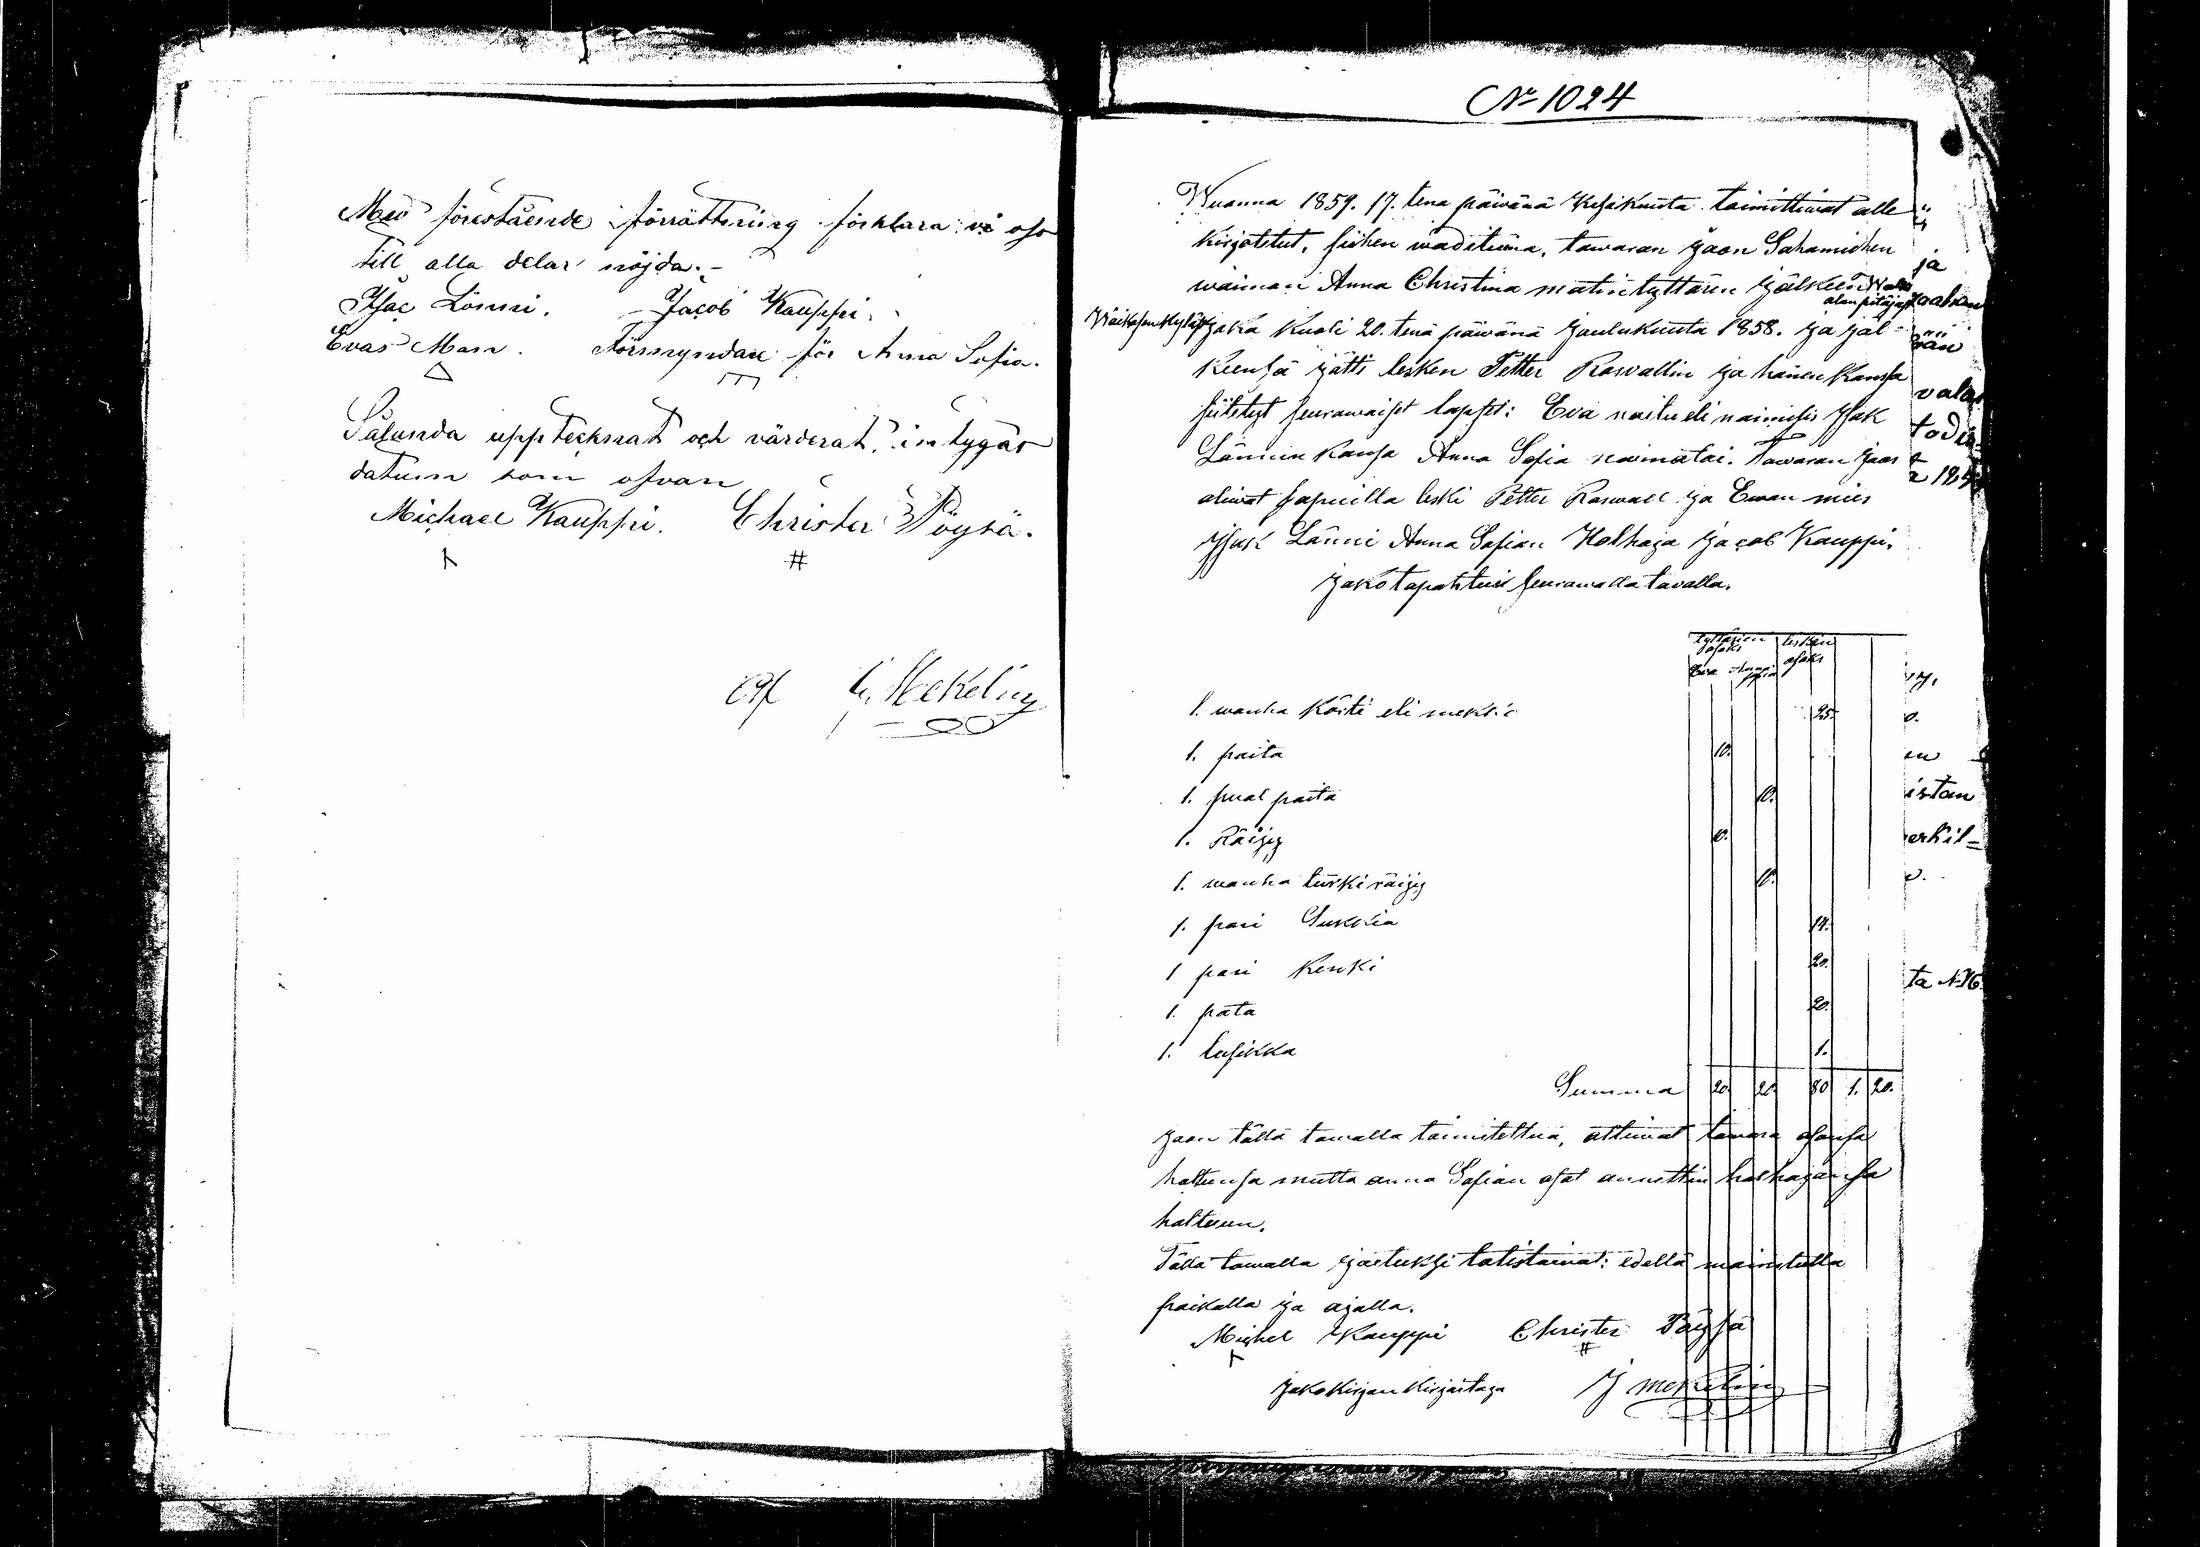 Med förestående förrättning förklara vi oss
till alla delar nöjda.-
Isac Lönni. Jacob Kauppi.
Evas Man. Förmyndare för Anna Sofia.
Sålunda upptecknat och värderat, intygar
datum som ofvan
Michael Kauppi. Christer Pöysä.
#
G. Mekelin
No 1024
Wuonna 1859. 17. tena päivänä Kesäkuuta toimittivat alle
kirjotetut, siihen waadittuina, tawaran jaon Sahamiehen
waimon Anna Christina matintyttären jälkeen
alan pitäjäs
Wäikosen kyläs joka kuoli 20. tenä päivänä joulukuuta 1858. ja jäl-
keensä jätti lesken Petter Raswallin ja hänen kanssa
siitetyt seurawaiset lapset: Eva nailu eli naimisis Isak
Lännin kansa Anna Sofia naimatoi. Tawaran jaos
olivat sapuilla leski Petter Raswall ja Ewan mies
Isak Länni Anna Sofian Holhoja Jacob Kauppi.
Jako tapahtui seurawalla tavalla.
tyttärien osaksi lesken osaksi
Eva Anna Sofia
1. wanha Költi eli mekko 25.
1. paita 10.
1. puol paita 10.
1. Röijy 10.
1. wanha turki röijy 10.
1. pari Sukkia 14.
1 pari Kenki 20.
1. pata 20.
1. lusikka 1.
Summa 20 20 80 1. 20.
Jaon tällä tawalla toimitettua, ottiwat tawara osansa
haltunsa mutta anna Sofian osat annettiin holhojansa
haltuun.
Tällä tawalla jaetuksi totistawat: edellä mainitulla
paikalla ja ajalla.
Michel Kauppi Christer Pöysä
#
Jakokirjan kirjoitaja J mekelin
ja
valas
istan
erkil=
ta N:16